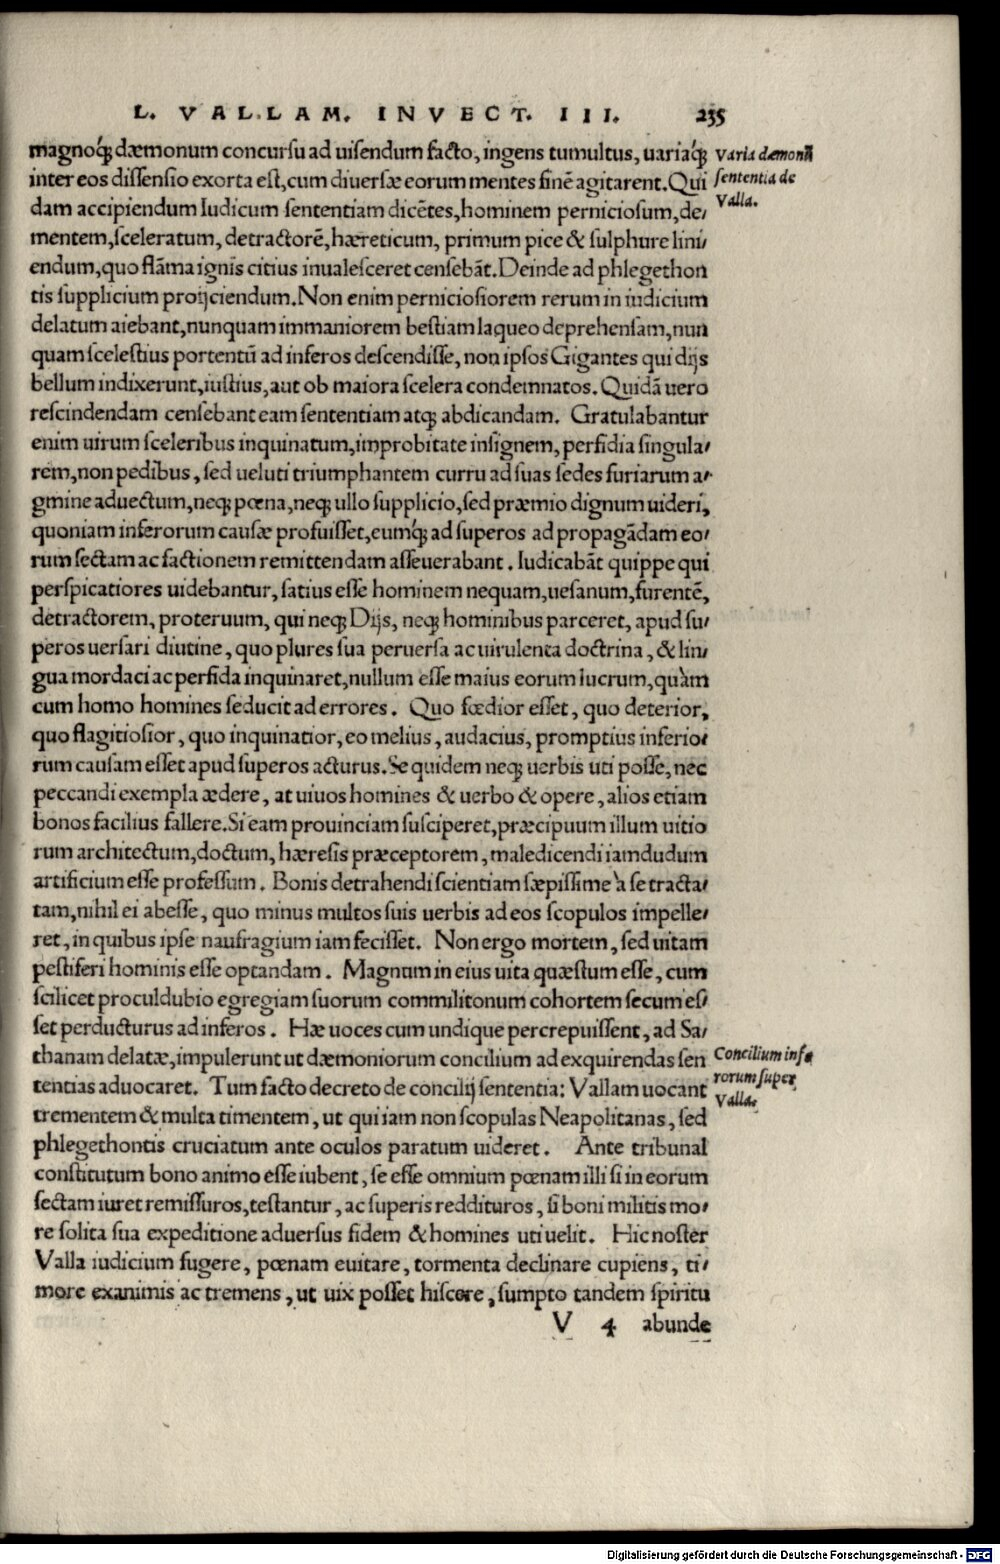 L. VALLAM. INVECT. III. 235
magnoq́; dæmonum concursu ad uisendum facto, ingens tumultus, uariaq́; Varia dæmonũ
inter eos dissensio exorta est, cum diuersæ eorum mentes sinē agitarent. Qui sententia de
dam accipiendum Iudicum sententiam dicētes, hominem perniciosum, de/ Valla.
mentem, sceleratum, detractorē, hæreticum, primum pice & sulphure lini/
endum, quo flāma ignis citius inualesceret censebāt. Deinde ad phlegethon
tis supplicium proijciendum. Non enim perniciosiorem rerum in iudicium
delatum aiebant, nunquam immaniorem bestiam laqueo deprehensam, nun
quam scelestius portentũ ad inferos descendisse, non ipsos Gigantes qui dijs
bellum indixerunt, iustius, aut ob maiora scelera condemnatos. Quidā uero
rescindendam censebant eam sententiam atq; abdicandam. Gratulabantur
enim uirum sceleribus inquinatum, improbitate insignem, perfidia singula/
rem, non pedibus, sed ueluti triumphantem curru ad suas sedes furiarum a/
gmine aduectum, neq; pœna, neq; ullo supplicio, sed præmio dignum uideri,
quoniam inferorum causæ profuisset, eumq́; ad superos ad propagādam eo/
rum sectam ac factionem remittendam asseuerabant. Iudicabāt quippe qui
perspicatiores uidebantur, satius esse hominem nequam, uesanum, furentē,
detractorem, proteruum, qui neq; Dijs, neq; hominibus parceret, apud su/
peros uersari diutine, quo plures sua peruersa ac uirulenta doctrina, & lin/
gua mordaci ac perfida inquinaret, nullum esse maius eorum lucrum, quàm
cum homo homines seducit ad errores. Quo fœdior esset, quo deterior,
quo flagitiosior, quo inquinatior, eo melius, audacius, promptius inferio/
rum causam esset apud superos acturus. Se quidem neq; uerbis uti posse, nec
peccandi exempla ædere, at uiuos homines & uerbo & opere, alios etiam
bonos facilius fallere. Si eam prouinciam susciperet, præcipuum illum uitio
rum architectum, doctum, hæresis præceptorem, maledicendi iamdudum
artificium esse professum. Bonis detrahendi scientiam sæpissime à se tracta/
tam, nihil ei abesse, quo minus multos suis uerbis ad eos scopulos impelle/
ret, in quibus ipse naufragium iam fecisset. Non ergo mortem, sed uitam
pestiferi hominis esse optandam. Magnum in eius uita quæstum esse, cum
scilicet proculdubio egregiam suorum commilitonum cohortem secum es/
set perducturus ad inferos. Hæ uoces cum undique percrepuissent, ad Sa/
thanam delatæ, impulerunt ut dæmoniorum concilium ad exquirendas sen Concilium infe
tentias aduocaret. Tum facto decreto de concilij sententia: Vallam uocant rorum super
trementem & multa timentem, ut qui iam non scopulas Neapolitanas, sed Valla.
phlegethontis cruciatum ante oculos paratum uideret. Ante tribunal
constitutum bono animo esse iubent, se esse omnium pœnam illi si in eorum
sectam iuret remissuros, testantur, ac superis reddituros, si boni militis mo/
re solita sua expeditione aduersus fidem & homines uti uelit. Hic noster
Valla iudicium fugere, pœnam euitare, tormenta declinare cupiens, ti/
more exanimis ac tremens, ut uix posset hiscere, sumpto tandem spiritu
V 4 abunde
Digitalisierung gefördert durch die Deutsche Forschungsgemeinschaft - DFG